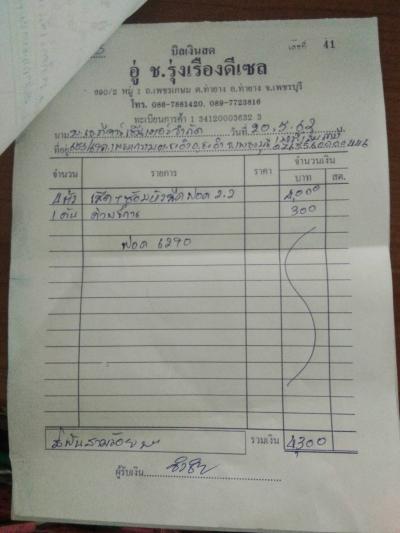 บิลเงินสด
เล่มที่ 41
อู่ ช.รุ่งเรืองดีเซล
690/2 หมู่ 1 ถ.เพชรเกษม ต.ท่ายาง อ.ท่ายาง จ.เพชรบุรี
โทร. 086-7881420, 089-7723816
ทะเบียนการค้า 1 34120003632 3
นาม จำกัด วันที่ 20.5.63
ที่อยู่
จำนวน รายการ ราคา จำนวนเงิน
บาท สต.
4 หัว ฟอด 2.2 4,000
1 คัน ค่าบริการ 300
ฟอด 6290
สี่พันสามร้อย รวมเงิน 4,300
ผู้รับเงิน